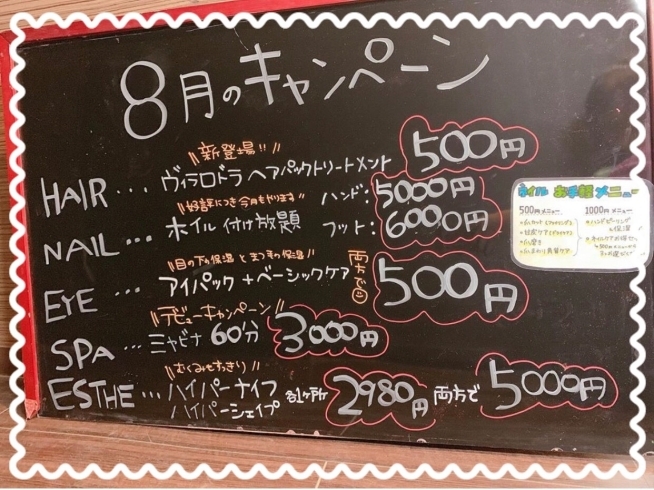 8月のキャンペーン
\\新登場!!//
HAIR… ヴィラロドラ ヘアパックトリートメント 500円
\\好評につき今月もやります//
NAIL… ホイル 付け放題 ハンド: 5000円
フット: 6000円
\\目の下の保湿とまつ毛の保湿//
EYE … アイパック + ベーシックケア 両方で 500円
\\デビューキャンペーン//
SPA… ミャビナ 60分 3000円
\\むくみもすっきり//
ESTHE… ハイパーナイフ
ハイパーシェイプ 各1ヶ所 2980円 両方で 5000円
ネイル お手軽メニュー
500円メニュー
1000円メニュー